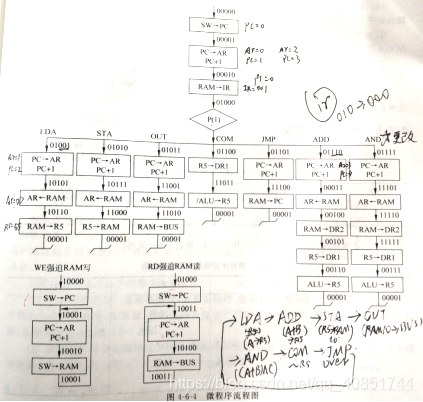 00000
SW→PC PC=0
00001
PC→AR AR=0 AR=2
PC+1 PC=1 PC=3
00010
RAM→IR
01000
P(1)
010→000
LDA STA OUT COM JMP ADD AND
01001 01010 01011 01100 01101 01110 01111
PC→AR PC→AR PC→AR R5→DR1 PC→AR PC→AR PC→AR
PC+1 PC+1 PC+1 PC+1 PC+1 PC+1
10101 10111 11001 11011 11100 11101
AR←RAM AR←RAM AR←RAM /ALU→R5 RAM→PC AR←RAM AR←RAM
10110 11000 11010 00001 00001 11110
RAM→R5 R5→RAM RAM→BUS RAM→DR2 RAM→DR2
00001 00001 00001 00101 11111
R5→DR1 R5→DR1
00110 00111
ALU→R5 ALU→R5
00001 00001
WE强迫RAM写 RD强迫RAM读
10000 01000
SW→PC SW→PC
10001 10011
PC→AR PC→AR
PC+1 PC+1
10010 10100
SW→RAM RAM→BUS
10001 10011
→LDA→ADD→STA→OUT
→AND→COM→JMP
https://blog.csdn.net/qq_40851744
图 4-6-4 微程序流程图